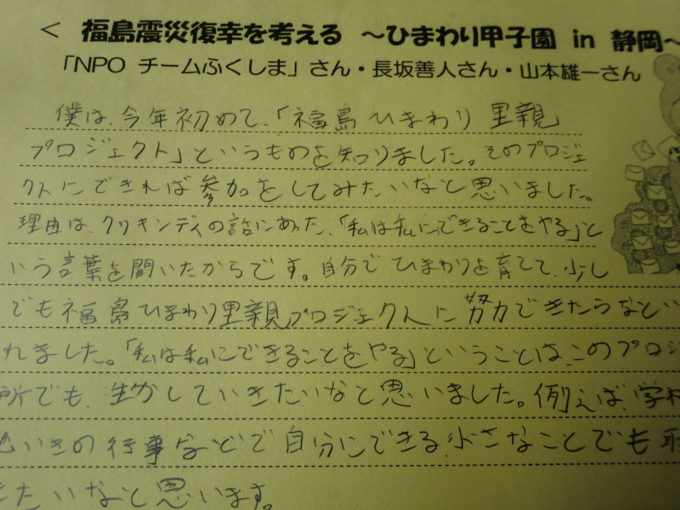 < 福島震災復幸を考える ～ひまわり甲子園 in 静岡～
「NPO チームふくしま」さん・長坂善人さん・山本雄一さん
僕は、今年初めて、「福島 ひまわり 里親
プロジェクト」というものを知りました。そのプロジェ
クトにできれば参加をしてみたいなと思いました。
理由は、クリキンディの話にあった、「私は私にできることをやる」と
いう言葉を聞いたからです。自分で ひまわりを育てて、少し
でも福島ひまわり里親プロジェクトに努力できたらなとい
れました。「私は私にできることをやる」ということは、このプロジ
所でも、生かしていきたいなと思いました。例えば、学校
いきの行事などで自分にできる、小さなことでも取
きたいなと思います。